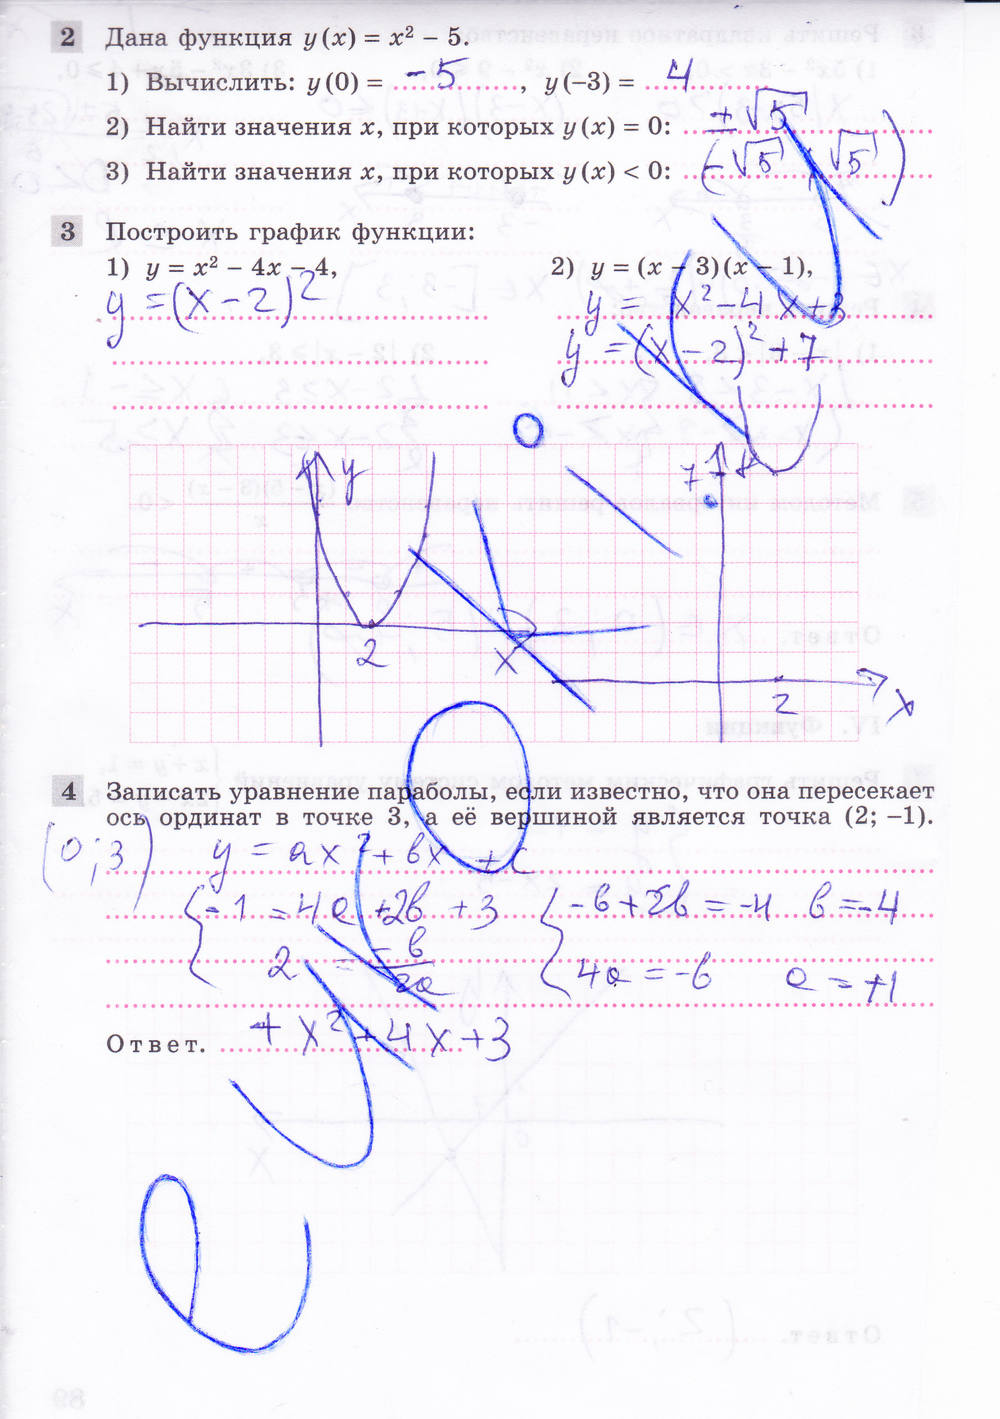 2 Дана функция y(x) = x² – 5.
1) Вычислить: y(0) = -5, y(–3) = 4
2) Найти значения x, при которых y(x) = 0: ±√5
3) Найти значения x, при которых y(x) < 0: (-√5; √5)
3 Построить график функции:
1) y = x² – 4x – 4, 2) y = (x – 3)(x – 1),
y = (x-2)² y = x²-4x+3
y = (x-2)²+7
y 7 y
2 x 2 x
4 Записать уравнение параболы, если известно, что она пересекает
ось ординат в точке 3, а её вершиной является точка (2; –1).
(0;3) y = ax²+bx+c
{-1 = 4a+2b+3 {-b+2b = -4 b = -4
2 = -b/2a 4a = -b a = +1
Ответ. + x²+4x+3